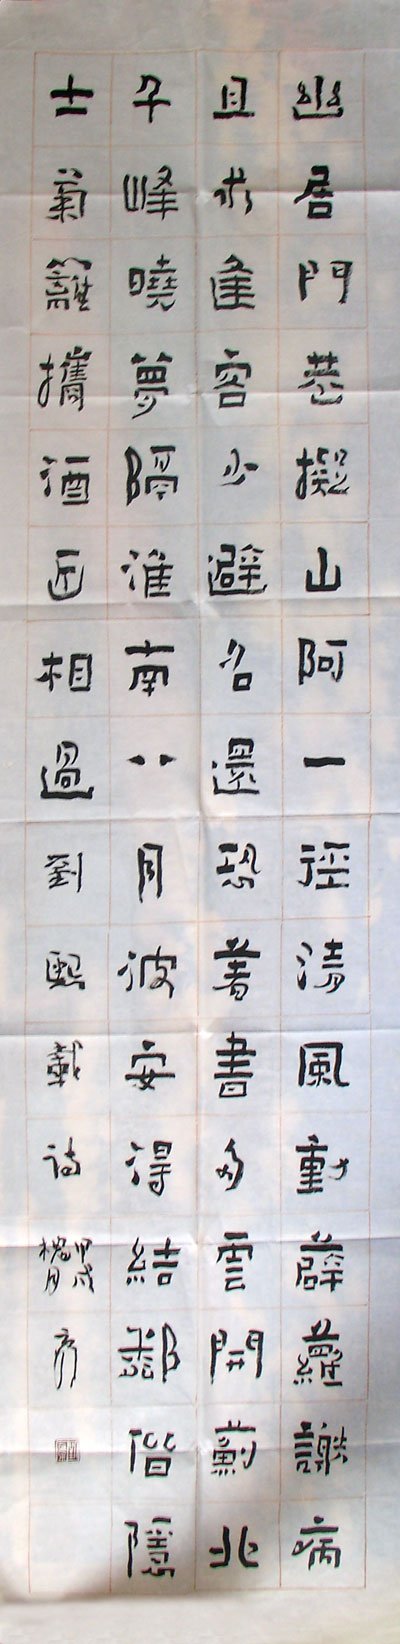 幽居門巷擬山阿一徑清風動薜蘿謝病
且求逢客少避名還恐著書多雲開薊北
千峰曉夢隔淮南八月波安得結鄰偕隱
士菊籬攜酒匠相過劉熙載詩
甲戌
槐月